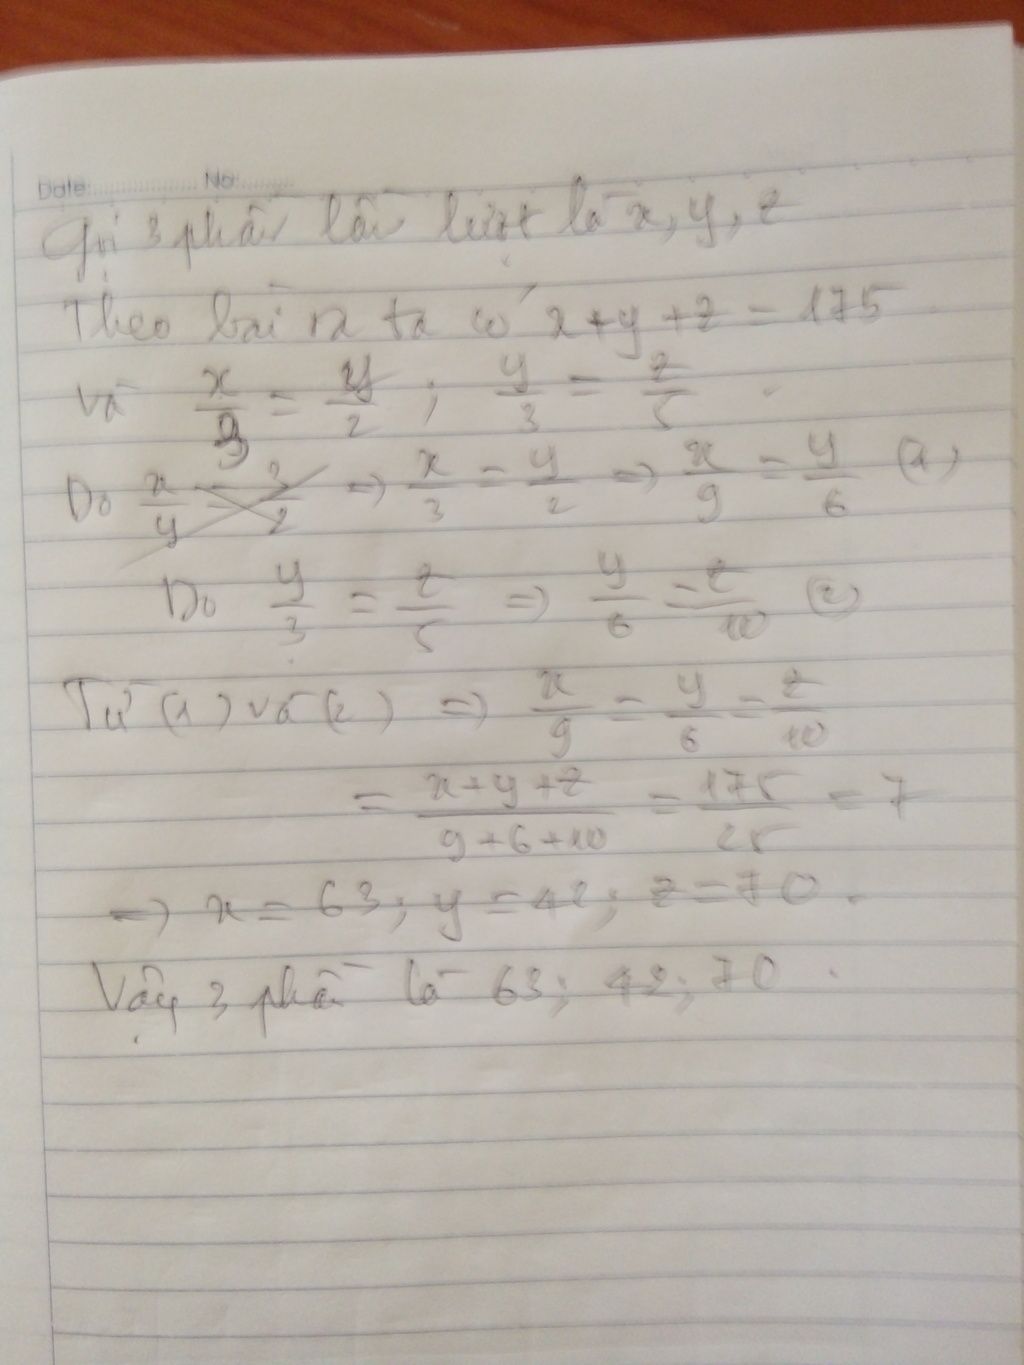 Date: No:
Gọi 3 phần lần lượt là x, y, z
Theo bài ra ta có x+y+z = 175
Và x/3 = y/2 ; y/3 = z/5
Do x/y = 3/2 => x/3 = y/2 => x/9 = y/6 (1)
Do y/3 = z/5 => y/6 = z/10 (2)
Từ (1) và (2) => x/9 = y/6 = z/10
= x+y+z/9+6+10 = 175/25 = 7
=> x = 63; y = 42; z = 70.
Vậy 3 phần là 63; 42; 70.